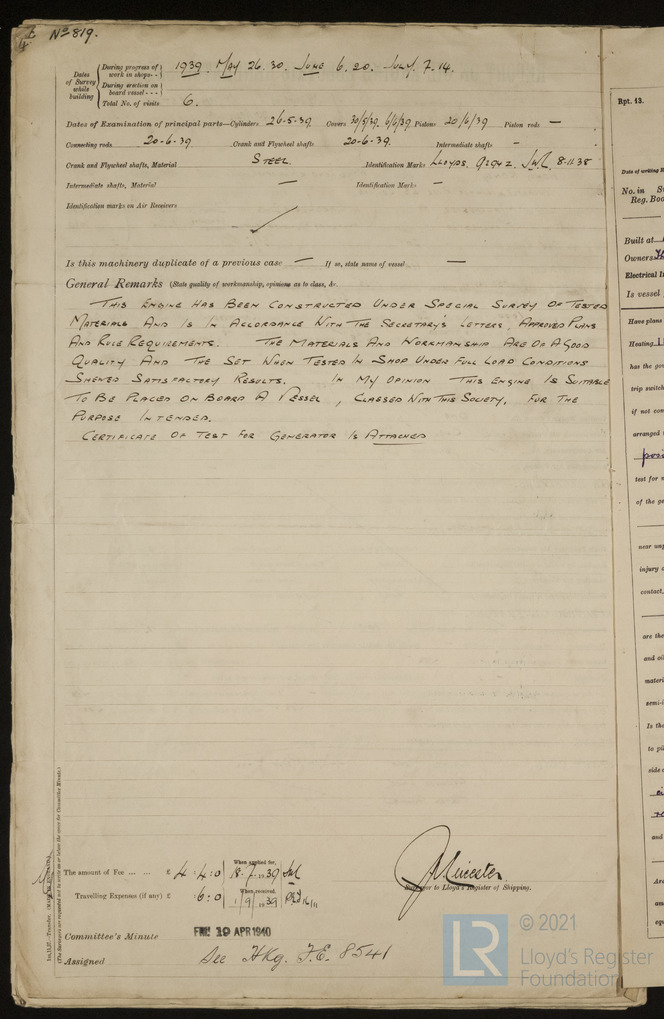 Nº 819.
Dates of Survey while building
During progress of work in shops-- 1939 MAY 26. 30. JUNE 6. 20. JULY. 7. 14.
During erection on board vessel---
Total No. of visits 6.
Dates of Examination of principal parts—Cylinders 26-5-39 Covers 30/5/39, 6/6/39 Pistons 20/6/39 Piston rods —
Connecting rods 20-6-39 Crank and Flywheel shafts 20-6-39. Intermediate shafts -
Crank and Flywheel shafts, Material STEEL Identification Marks LLOYDS. JWL 8-11-38
Intermediate shafts, Material — Identification Marks —
Identification marks on Air Receivers
Is this machinery duplicate of a previous case — If so, state name of vessel —
General Remarks (State quality of workmanship, opinions as to class, &c.
THIS ENGINE HAS BEEN CONSTRUCTED UNDER SPECIAL SURVEY OF TESTED
MATERIALS AND IS IN ACCORDANCE WITH THE SECRETARY'S LETTERS, APPROVED PLANS
AND RULE REQUIREMENTS. THE MATERIALS AND WORKMANSHIP ARE OF A GOOD
QUALITY AND THE SET WHEN TESTED IN SHOP UNDER FULL LOAD CONDITIONS
SHEWED SATISFACTORY RESULTS. IN MY OPINION THIS ENGINE IS SUITABLE
TO BE PLACED ON BOARD A VESSEL, CLASSED WITH THIS SOCIETY, FOR THE
PURPOSE INTENDED.
CERTIFICATE OF TEST FOR GENERATOR IS ATTACHED
The amount of Fee ... ... £ 4 : 4 : 0 When applied for, 18.7.1939
Travelling Expenses (if any) £ : 6 : 0 When received. 1/9/1939
Surveyor to Lloyd's Register of Shipping.
Committee's Minute FRI. 19 APR 1940
Assigned See Hkg. F.E. 8541
(The Surveyors are requested not to write on or below the space for Committee's Minute.)
Rpt. 13.
Date of writing
No. in
Reg. Boo
Built at
Owners
Electrical
Is vessel
Have plans
Heating
has the
trip switch
if not
arranged
test for
of the
near
injury
contact,
are the
and
semi-
Is the
to
side
and
Are
and
© 2021
LR
Lloyd's Register
Foundation